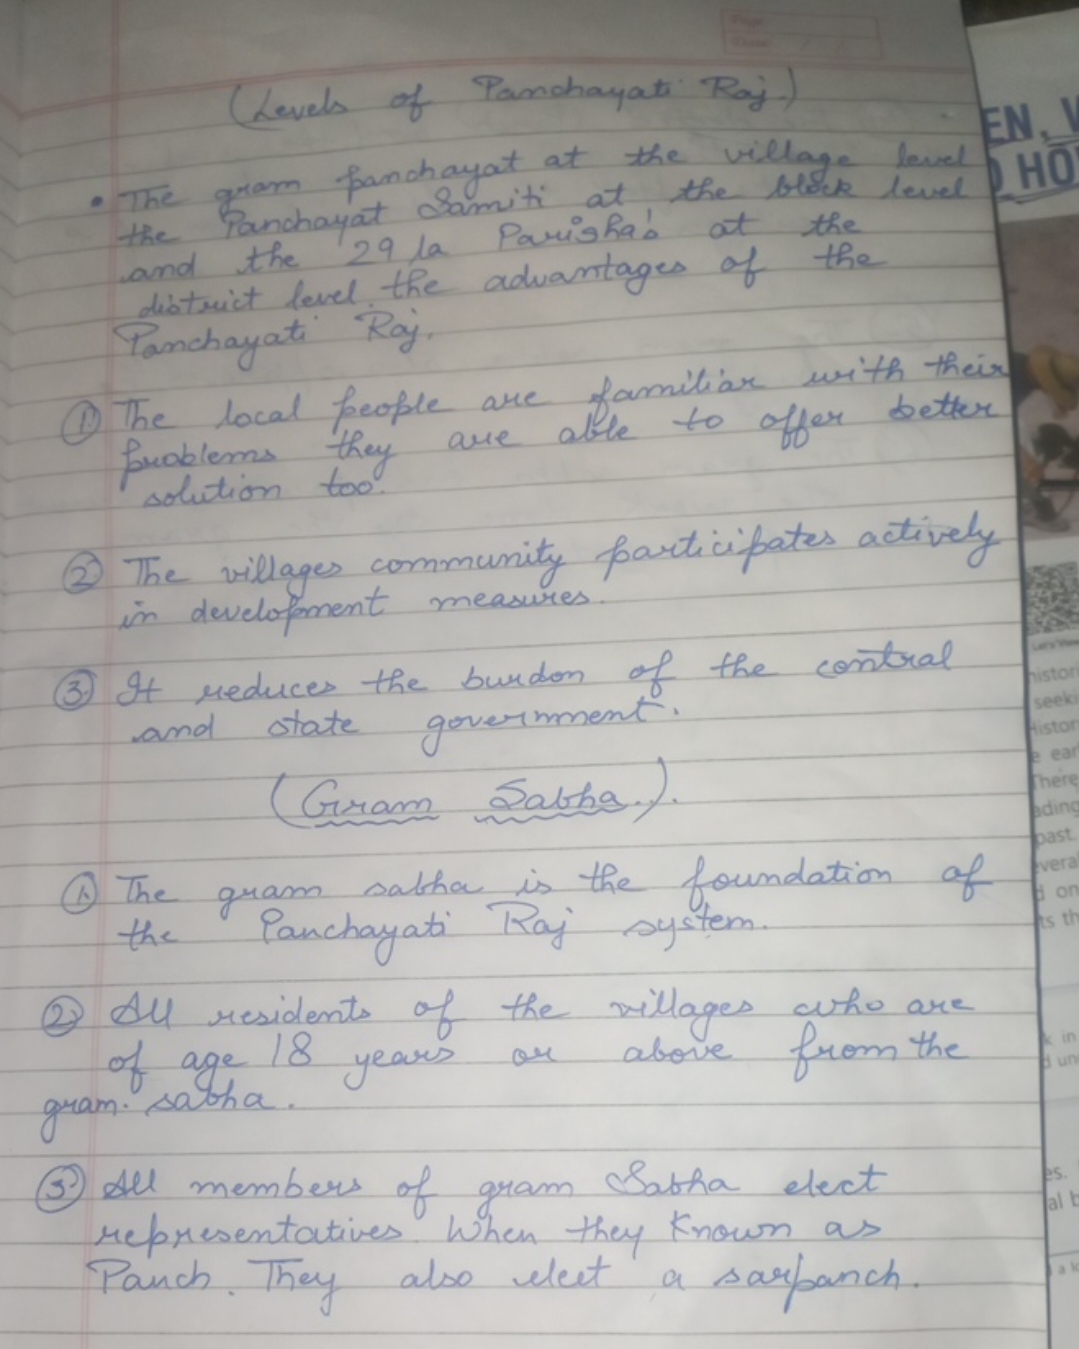 (Levels of Panchayati Raj.)
• The gram panchayat at the village level
the Panchayat Samiti at the block level
and the 29 la Parisha's at the
district level. the advantages of the
Panchayati Raj.
① The local people are familiar with their
problems they are able to offer better
solution too.
② The villages community participates actively
in development measures.
③ It reduces the burdon of the contral
and state government.
(Gram Sabha.).
① The gram sabha is the foundation of
the Panchayati Raj system.
② All residents of the villages who are
of age 18 years or above from the
gram. sabha.
③ All members of gram Sabha elect
representatives. When they Known as
Panch. They also elect a sarpanch.
EN, W
D HO
histori
seeki
Histor
e ear
There
ading
past.
evera
d on
ts th
k in
d un
es.
al b